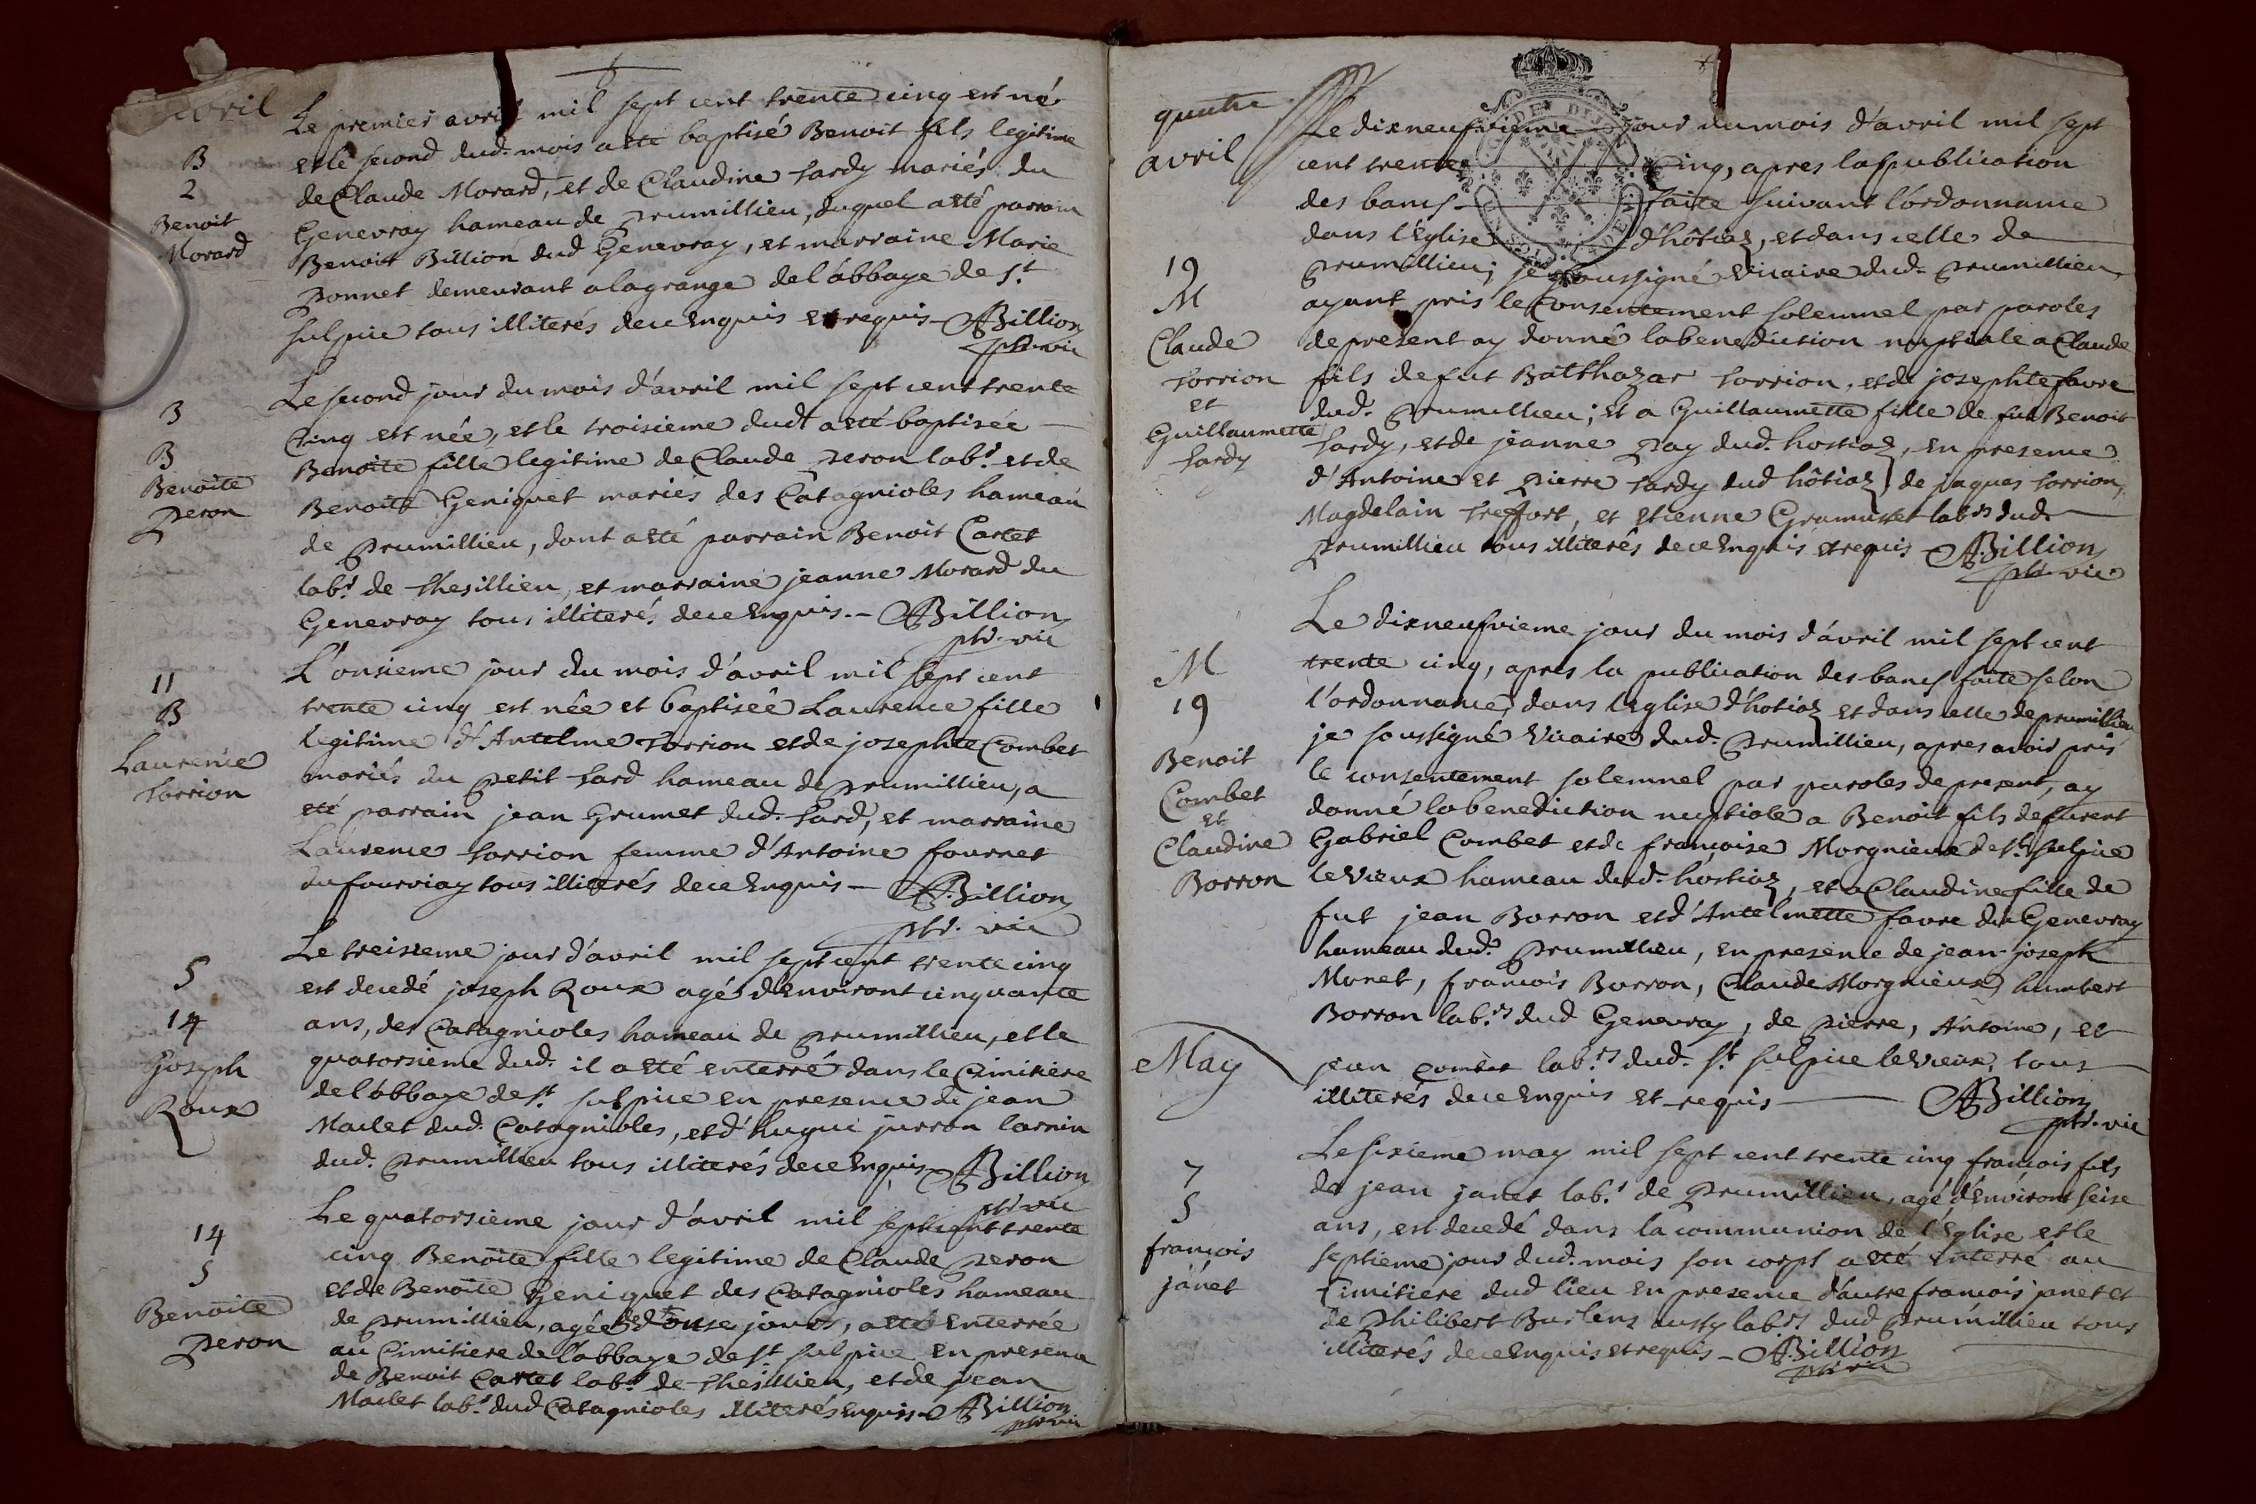 avril
Le premier avril mil sept cent trente cinq est né
et le second dud. mois a eté baptisé Benoit fils legitime
B
2
Benoit
Morard
de Claude Morard, et de Claudine hardy mariés du
Genevray hameau de prumillieu, duquel a eté parrain
Benoit Billion dud Genevray, et marraine Marie
ponnet demeurant a la grange de l'abbaye de St.
sulpice tous illiterés de ce enquis et requis - ABillion
ptr. vic
Le second jour du mois d'avril mil sept cent trente
3
B
Benoite
peron
cinq est née, et le troisieme dud a eté baptisée
Benoite fille legitime de Claude peron labr. et de
Benoite Geniquet mariés des Catagnioles hameau
de prumillieu, dont a eté parrain Benoit Cartet
labr. de thesillieu, et marraine jeanne Morard du
Genevray tous illiterés de ce enquis. - ABillion
ptr. vic
L'onsieme jour du mois d'avril mil sept cent
11
B
Laurence
sorrion
trente cinq est née et baptisée Laurence fille
legitime d'Antelme sorrion et de josephte Combet
mariés du petit hard hameau de prumillieu, a
eté parrain jean Grumet dud. hard, et marraine
Laurence sorrion femme d'Antoine fournet
du fourviay tous illiterés de ce enquis - ABillion
ptr. vic
Le treisieme jour d'avril mil sept cent trente cinq
S
14
Joseph
Roux
est decedé joseph Roux agé d'environt cinquante
ans, des Catagnioles hameau de prumillieu, et le
quatorsieme dud. il a eté enterré dans le Cimitiere
de l'abbaye de St. sulpice en presence de jean
Maclet dud. Catagnioles, et d'hugue jurron
dud. prumillieu tous illiterés de ce enquis ABillion
ptr. vic
Le quatorsieme jour d'avril mil sept cent trente
14
S
Benoite
peron
cinq Benoite fille legitime de Claude peron
et de Benoite Geniquet des Catagnioles hameau
de prumillieu, agée d'onse jours, a eté enterrée
au Cimitiere de l'abbaye de St. sulpice en presence
de Benoit Cartet labr. de thesillieu, et de jean
Maclet labr. dud Catagnioles illiterés enquis ABillion
ptr. vic
quatre
avril
Le dixneufvieme jour du mois d'avril mil sept
cent trente cinq, apres la publication
des bancs faite suivant l'ordonnance
dans l'Eglise d'hôtiaz, et dans celle de
19
M
Claude
sorrion
et
Guillaumette
hardy
prumillieu; je soussigné vicaire dud. prumillieu
ayant pris le Consentement solemnel par paroles
de present ay donné la benediction nuptiale a Claude
fils de fut Balthazar sorrion, et de josephte favre
dud. prumillieu; Et a Guillaumette fille de fut Benoit
hardy, et de jeanne pay dud. hostiaz, en presence
d'Antoine et pierre hardy dud hôtiaz, de jaques sorrion,
Magdelain treffort, et etienne Gramusset labrs dud.
prumillieu tous illiterés de ce enquis et requis ABillion
ptr. vic
Le dixneufvieme jour du mois d'avril mil sept cent
M
19
Benoit
Combet
et
Claudine
Borron
trente cinq, apres la publication des bancs faite selon
l'ordonnance, dans l'eglise d'hotiaz et dans celle de prumillieu
je soussigné vicaire dud. prumillieu, apres avoir pris
le consentement solemnel par paroles de present, ay
donné la benediction nuptiale a Benoit fils de furent
Gabriel Combet et de francoise Morgnieux de St. sulpice
le vieux hameau dud. hostiaz, et a Claudine fille de
fut jean Borron et d'Antelmette favre du Genevray
hameau dud. prumillieu, en presence de jean-joseph
Monet, francois Borron, Claude Morgnieux, humbert
Borron labrs dud Genevray, de pierre, Antoine, et
May
jean Combet labrs. dud. St. sulpice le vieux, tous
illiterés de ce enquis et requis ABillion
ptr. vic
Le sixieme may mil sept cent trente cinq francois fils
7
S
francois
janet
de jean janet labr. de prumillieu, agé d'environt seise
ans, est decedé dans la communion de l'Eglise et le
septieme jour dud. mois son corps a eté enterré au
Cimitiere dud lieu en presence d'autre francois janet et
de philibert aussy labrs dud prumillieu tous
illiterés de ce enquis et requis - ABillion
ptr. vic